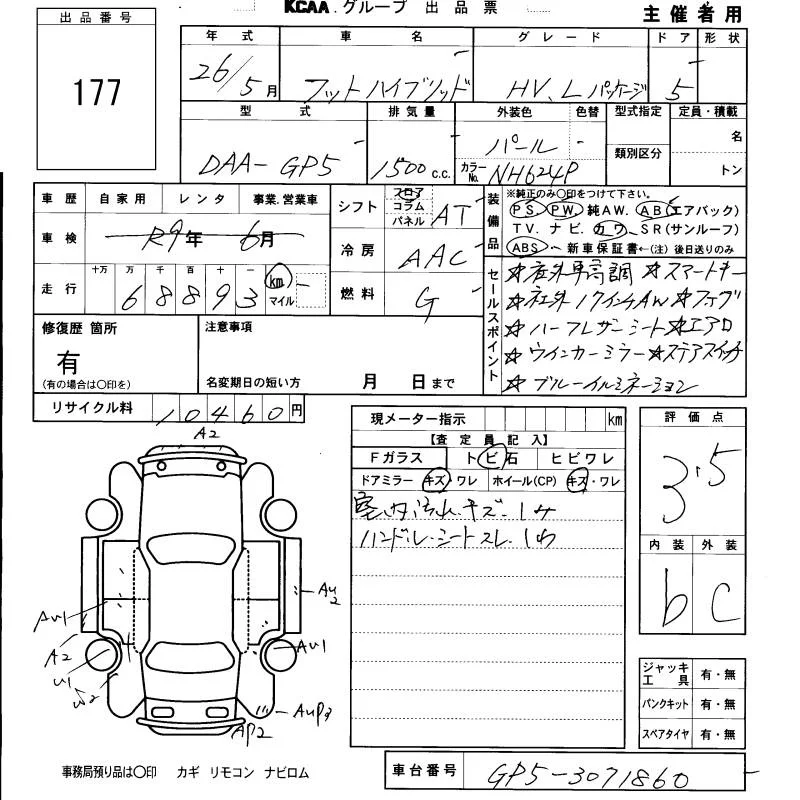 KCAA グループ 出品票 主催者用
出品番号
177
年式 車名 グレード ドア 形状
26/5月 フットハイブリッド HV、Lパッケージ 5
型式 排気量 外装色 色替 型式指定 定員・積載
DAA-GP5 1500 c.c. パール - 類別区分 名
カラーNo. NH624P トン
車歴 自家用 レンタ 事業.営業車
車検 R9年 6月
走行 十万 万 千 百 十 一
68893 km マイル
シフト フロア コラム パネル AT
冷房 AAC
燃料 G
装備品
※純正のみ〇印をつけて下さい。
PS PW 純AW. AB(エアバック)
TV.ナビ.カワ.SR(サンルーフ)
ABS 新車保証書←(注)後日送りのみ
セールスポイント
☆社外車高調 ☆スマートキー
☆社外17インチAW ☆フォグ
☆ハーフレザーシート ☆エアロ
☆ウインカーミラー ☆ステアスイッチ
☆ブルーイルミネーション
修復歴 箇所
有
(有の場合は〇印を)
注意事項
名変期日の短い方 月 日まで
リサイクル料 10460円
現メーター指示 km
【査定員記入】
Fガラス トビ石 ヒビワレ
ドアミラー キズ・ワレ ホイール(CP) キズ・ワレ
室内汚れ.キズ.1ヶ
ハンドル.シートスレ.1ヶ
評価点
3.5
内装 外装
b C
ジャッキ工具 有・無
パンクキット 有・無
スペアタイヤ 有・無
A2
Au2
Au1
A2
U1
W2
Au1
AuP3
AP2
事務局預り品は〇印 カギ リモコン ナビロム
車台番号 GP5-3071860